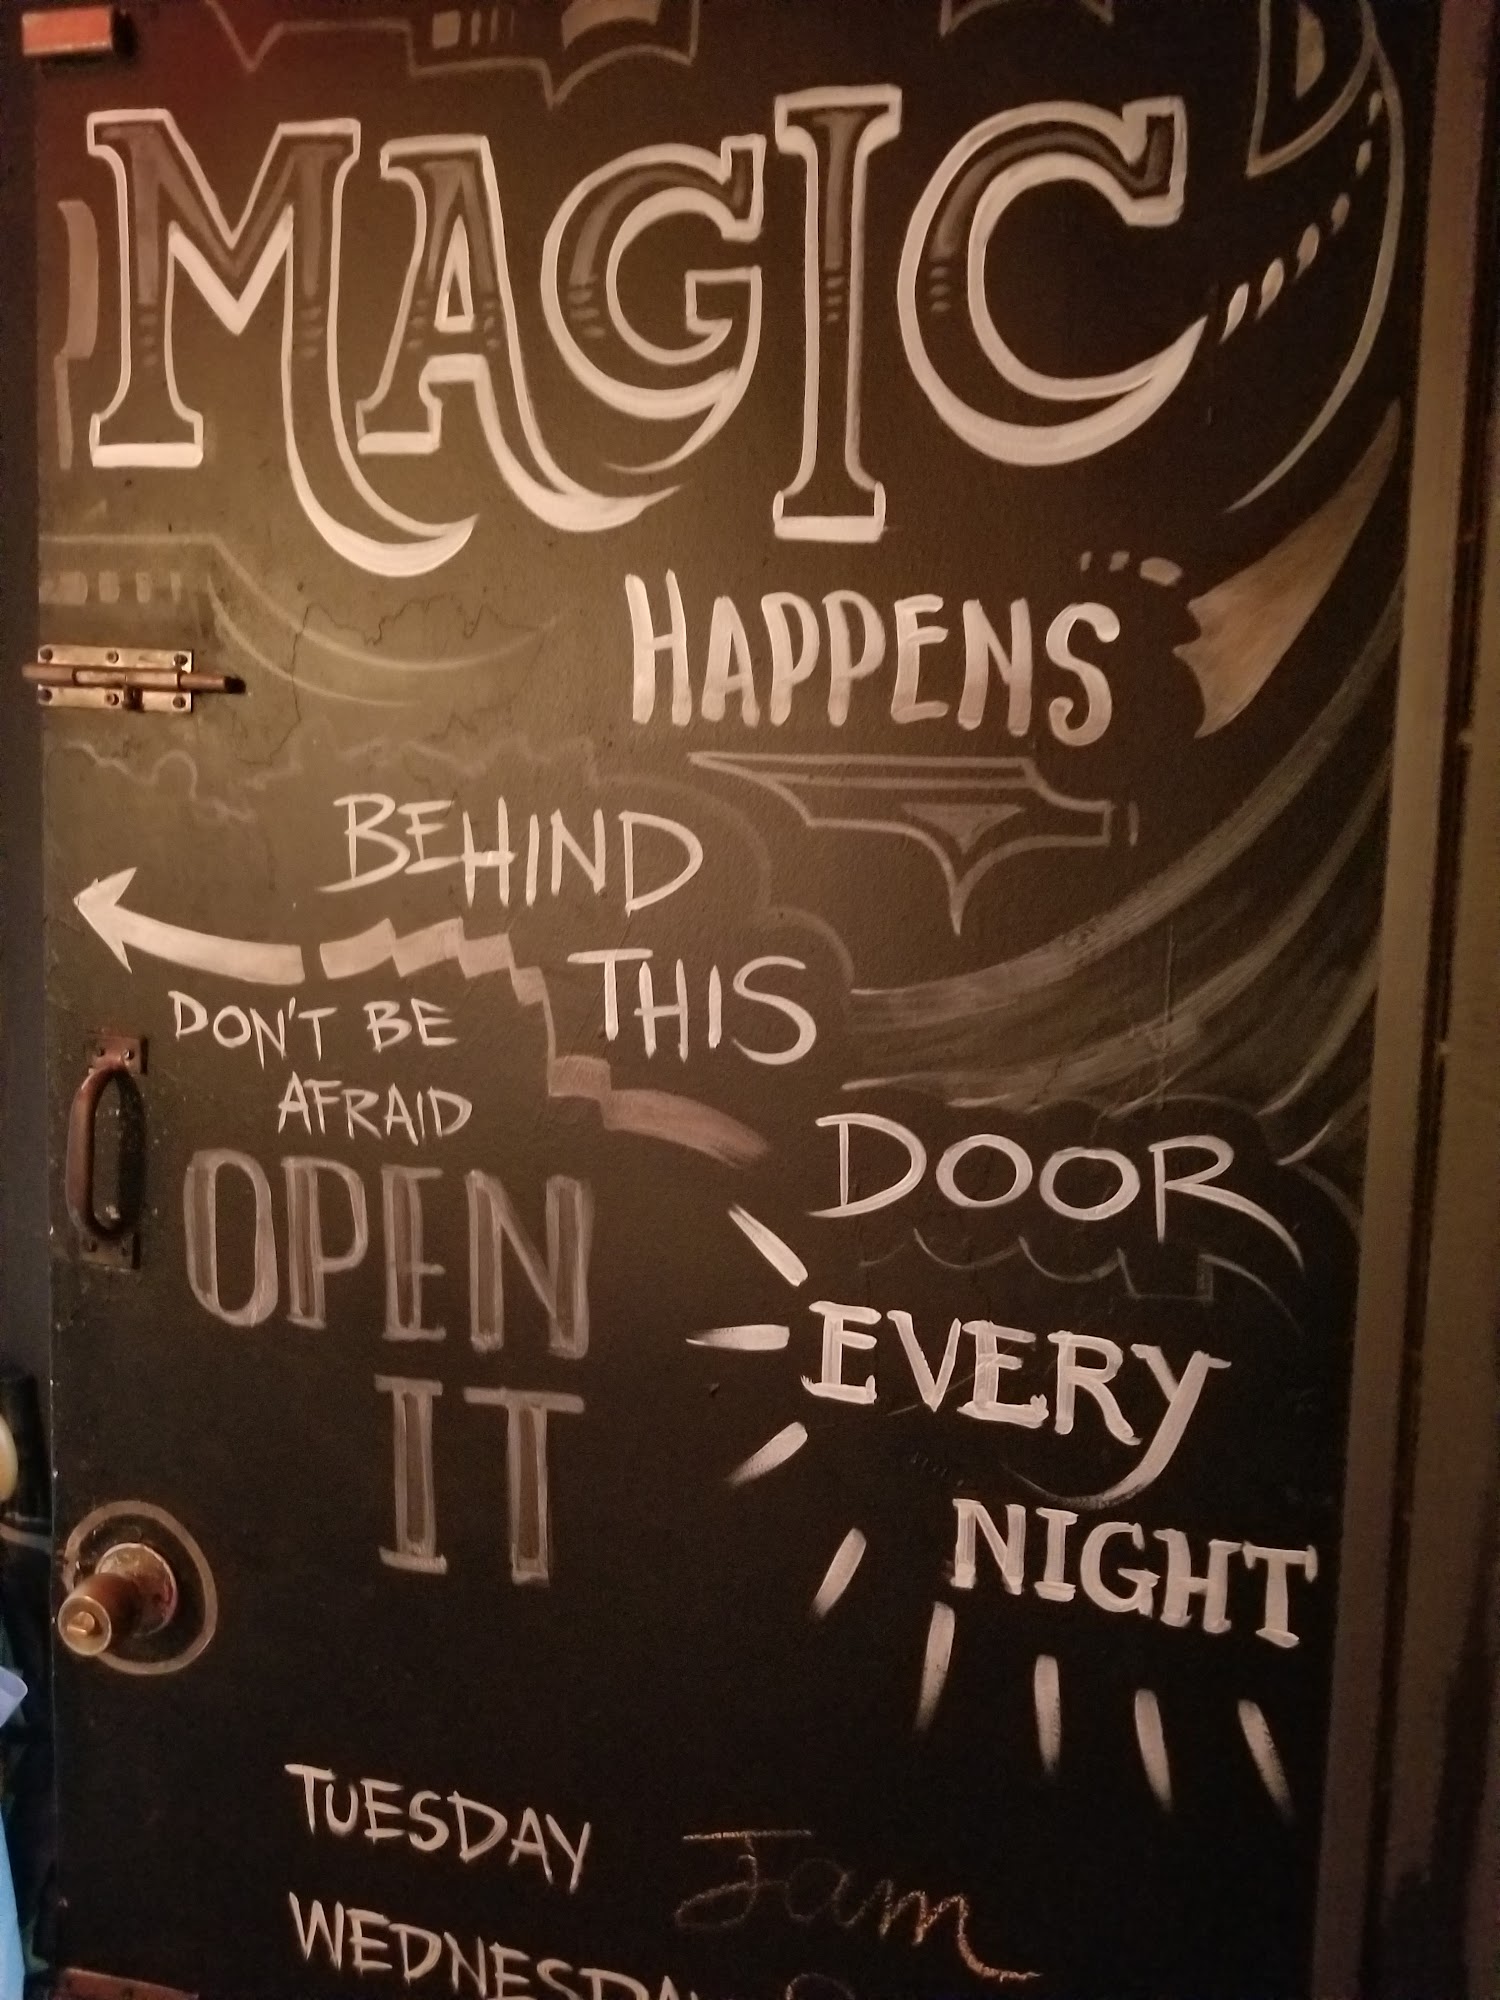 MAGIC
HAPPENS
BEHIND
THIS
DOOR
EVERY
NIGHT
DON'T BE
AFRAID
OPEN
IT
TUESDAY Jam
WEDNESDAY